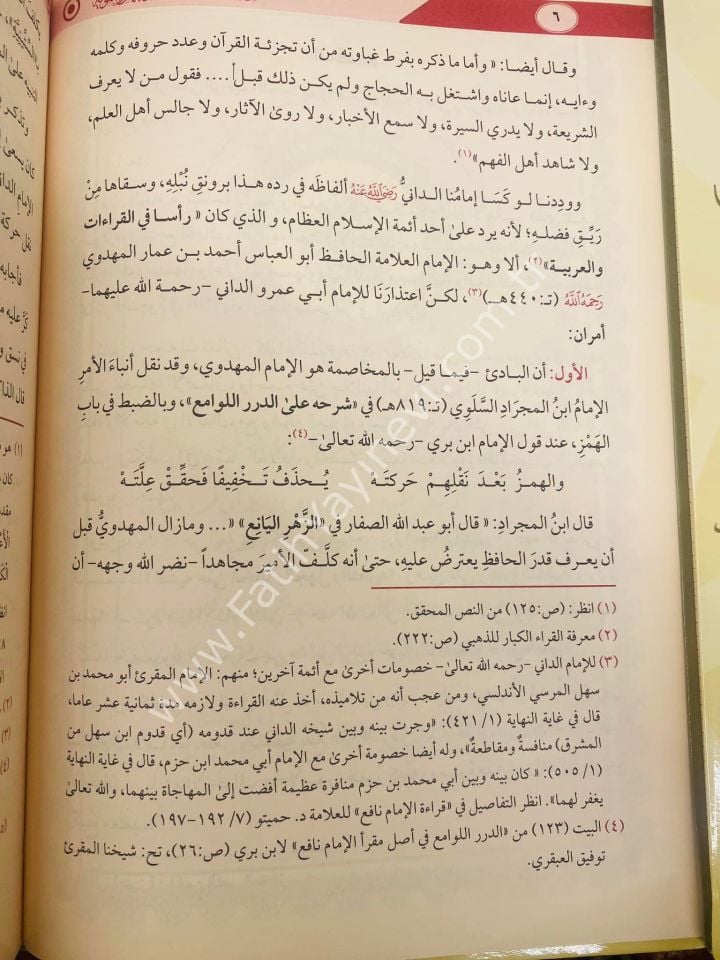 ٦
وقال أيضا: «وأما ما ذكره بفرط غباوته من أن تجزئة القرآن وعدد حروفه وكلمه
وءايه، إنما عاناه واشتغل به الحجاج ولم يكن ذلك قبل.... فقول من لا يعرف
الشريعة، ولا يدري السيرة، ولا سمع الأخبار، ولا روىٰ الآثار، ولا جالس أهل العلم،
ولا شاهد أهل الفهم»(١).
ووددنا لو كَسَا إمامُنا الدانيُّ رَضِيَ اللَّهُ عَنْهُ ألفاظَه في رده هذا برونقِ نُبْلِهِ، وسقاها مِنْ
رَيِّقِ فضلهِ؛ لأنه يرد علىٰ أحد أئمة الإسلام العظام، و الذي كان «رأسا في القراءات
والعربية»(٢)، ألا وهو: الإمام العلامة الحافظ أبو العباس أحمد بن عمار المهدوي
رَحِمَهُ اللَّهُ (تـ:٤٤٠هـ)(٣)، لكنَّ اعتذارَنَا للإمام أبي عمرو الداني -رحمة الله عليهما-
أمران:
الأول: أن البادئ -فيما قيل- بالمخاصمة هو الإمام المهدوي، وقد نقل أنباءَ الأمرِ
الإمامُ ابنُ المجرَادِ السَّلَوِي (تـ:٨١٩هـ) في «شرحه علىٰ الدرر اللوامع»، وبالضبط في بابِ
الهَمْزِ، عند قول الإمام ابن بري -رحمه الله تعالىٰ-(٤):
والهمزُ بَعْدَ نَقْلِهِمْ حَركتَهْ يُحذَفُ تَخْفِيفًا فَحقِّقْ عِلَّتَهْ
قال ابنُ المجرادِ: «قال أبو عبد الله الصفار في «الزَّهْرِ اليَانِعِ» «... ومازال المهدويُّ قبل
أن يعرف قدرَ الحافظِ يعترضُ عليهِ، حتىٰ أنه كلَّفَ الأميرَ مجاهداً -نضر الله وجهه- أن
(١) انظر: (ص:١٢٥) من النص المحقق.
(٢) معرفة القراء الكبار للذهبي (ص:٢٢٢).
(٣) للإمام الداني -رحمه الله تعالىٰ- خصومات أخرىٰ مع أئمة آخرين؛ منهم: الإمام المقرئ أبو محمد بن
سهل المرسي الأندلسي، ومن عجب أنه من تلاميذه، أخذ عنه القراءة ولازمه مدة ثمانية عشر عاما،
قال في غاية النهاية (١/ ٤٢١): «وجرت بينه وبين شيخه الداني عند قدومه (أي قدوم ابن سهل من
المشرق) منافسةٌ ومقاطعةٌ»، وله أيضا خصومة أخرىٰ مع الإمام أبي محمد ابن حزم، قال في غاية النهاية
(١/ ٥٠٥): «كان بينه وبين أبي محمد بن حزم منافرة عظيمة أفضت إلىٰ المهاجاة بينهما، والله تعالىٰ
يغفر لهما». انظر التفاصيل في «قراءة الإمام نافع» للعلامة د. حميتو (٧/ ١٩٢-١٩٧).
(٤) البيت (١٢٣) من «الدرر اللوامع في أصل مقرأ الإمام نافع» لابن بري (ص:٢٦)، تح: شيخنا المقرئ
توفيق العبقري.
www.FatihYayinevi.com.tr